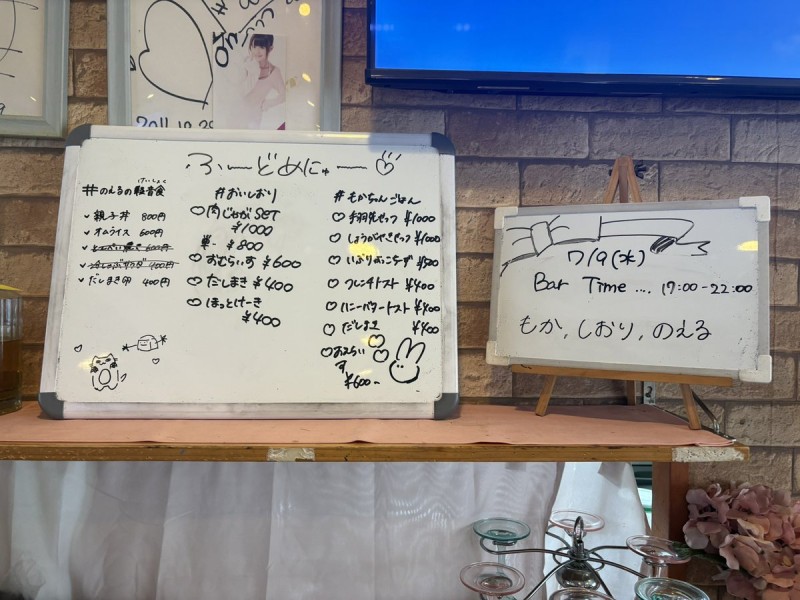 2011.10.29
ふーどめにゅー
#のえるの軽音食
けいしょく
✓ 親子丼 800円
✓ オムライス 600円
✓ とんぺい焼き 600円
✓ 冷しゃぶサラダ 400円
✓ だしまき卵 400円
#おいしおり
♡ 肉じゃがSET
¥1000
単- ¥800
♡ おむらいす ¥600
♡ だしまき ¥400
♡ ほっとけーき
¥400
#もかちゃんごはん
♡ 手羽先せっつ ¥1000
♡ しょうがやきせっつ ¥1000
♡ いぶりがっこちーず ¥500
♡ フレンチトスト ¥400
♡ ハニーバタートスト ¥400
♡ だしまき ¥400
♡ おむらい
す
¥600-
7/9(水)
Bar Time ... 17:00-22:00
もか, しおり, のえる